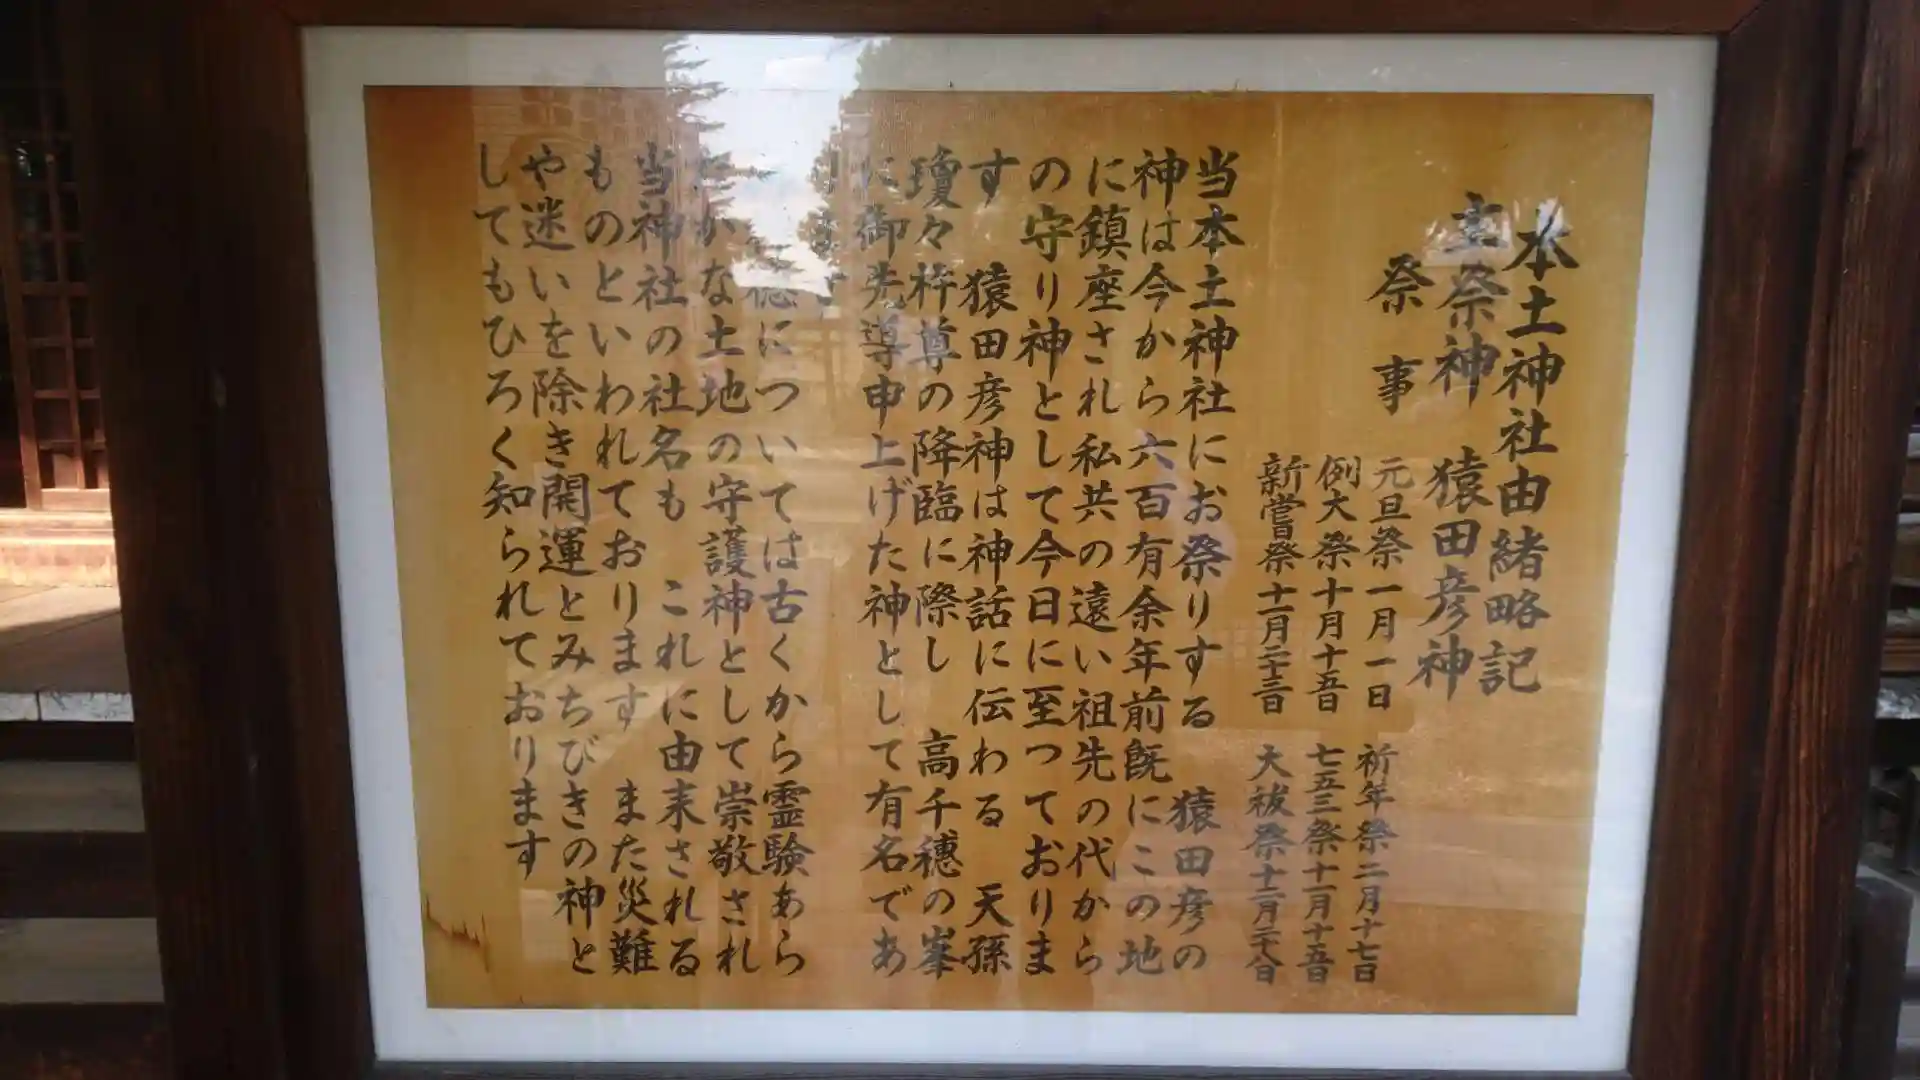 本土神社由緒略記
主祭神 猿田彦神
祭事
元旦祭 一月一日 祈年祭 二月十七日
例大祭 十月十五日 七五三祭 十一月十五日
新嘗祭 十一月二十三日 大祓祭 十二月二十八日
当本土神社にお祭りする 猿田彦の
神は今から六百有余年前既にこの地
に鎮座され私共の遠い祖先の代から
の守り神として今日に至っておりま
す 猿田彦神は神話に伝わる 天孫
瓊々杵尊の降臨に際し 高千穂の峯
に御先導申上げた神として有名であ
徳については古くから霊験あら
たかな土地の守護神として崇敬され
当神社の社名も これに由来される
ものといわれております また災難
や迷いを除き開運とみちびきの神と
してもひろく知られております